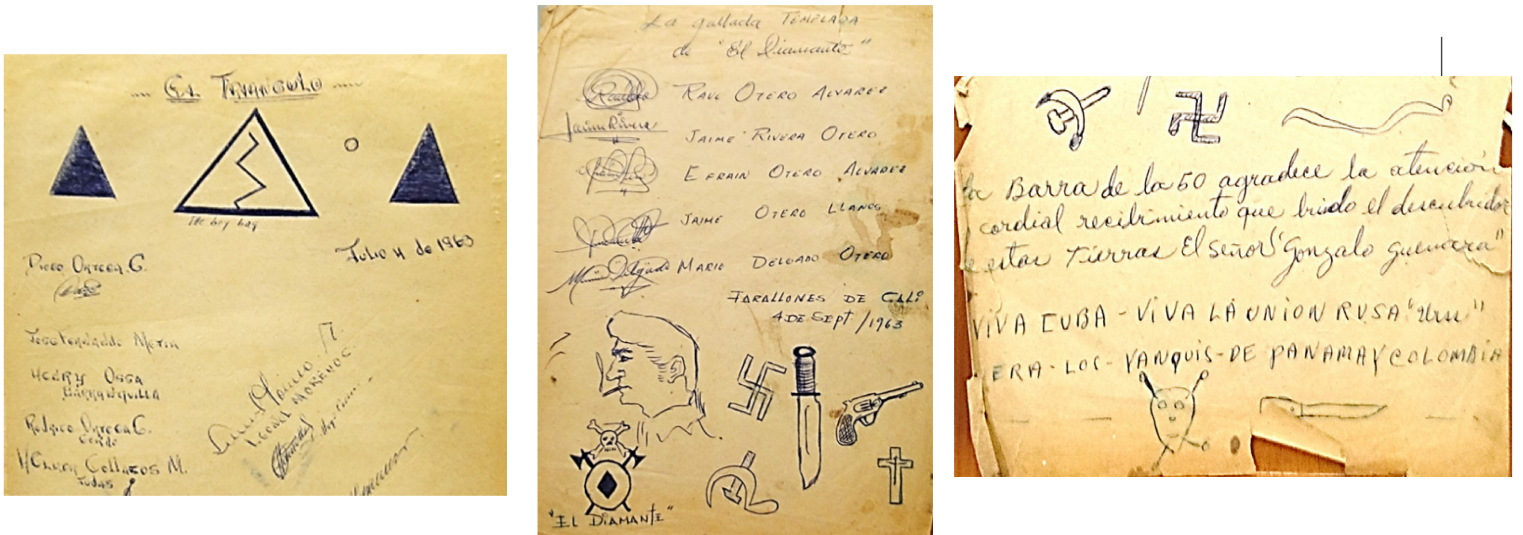 EL TRIANGULO
Julio 4 de 1963
Diego Ortega G.
Henry Ossa
Barranquilla
Rodrigo Ortega G.
Collazos M.
Judas
La gallada TEMPLADA
de "El Diamante"
RAUL OTERO ALVAREZ
Jaime Rivera
JAIME RIVERA OTERO
EFRAIN OTERO ALVAREZ
JAIME OTERO LLANOS
Mario Delgado
MARIO DELGADO OTERO
FARALLONES DE CALI
4 DE Sept / 1963
"EL DIAMANTE"
la Barra de la 50 agradece la atencion
cordial recibimiento que brindo el descubridor
e estas Tierras El señor "Gonzalo guerrera"
VIVA CUBA - VIVA LA UNION RUSA "Urss"
ERA - LOS - YANQUIS - DE PANAMA Y COLOMBIA